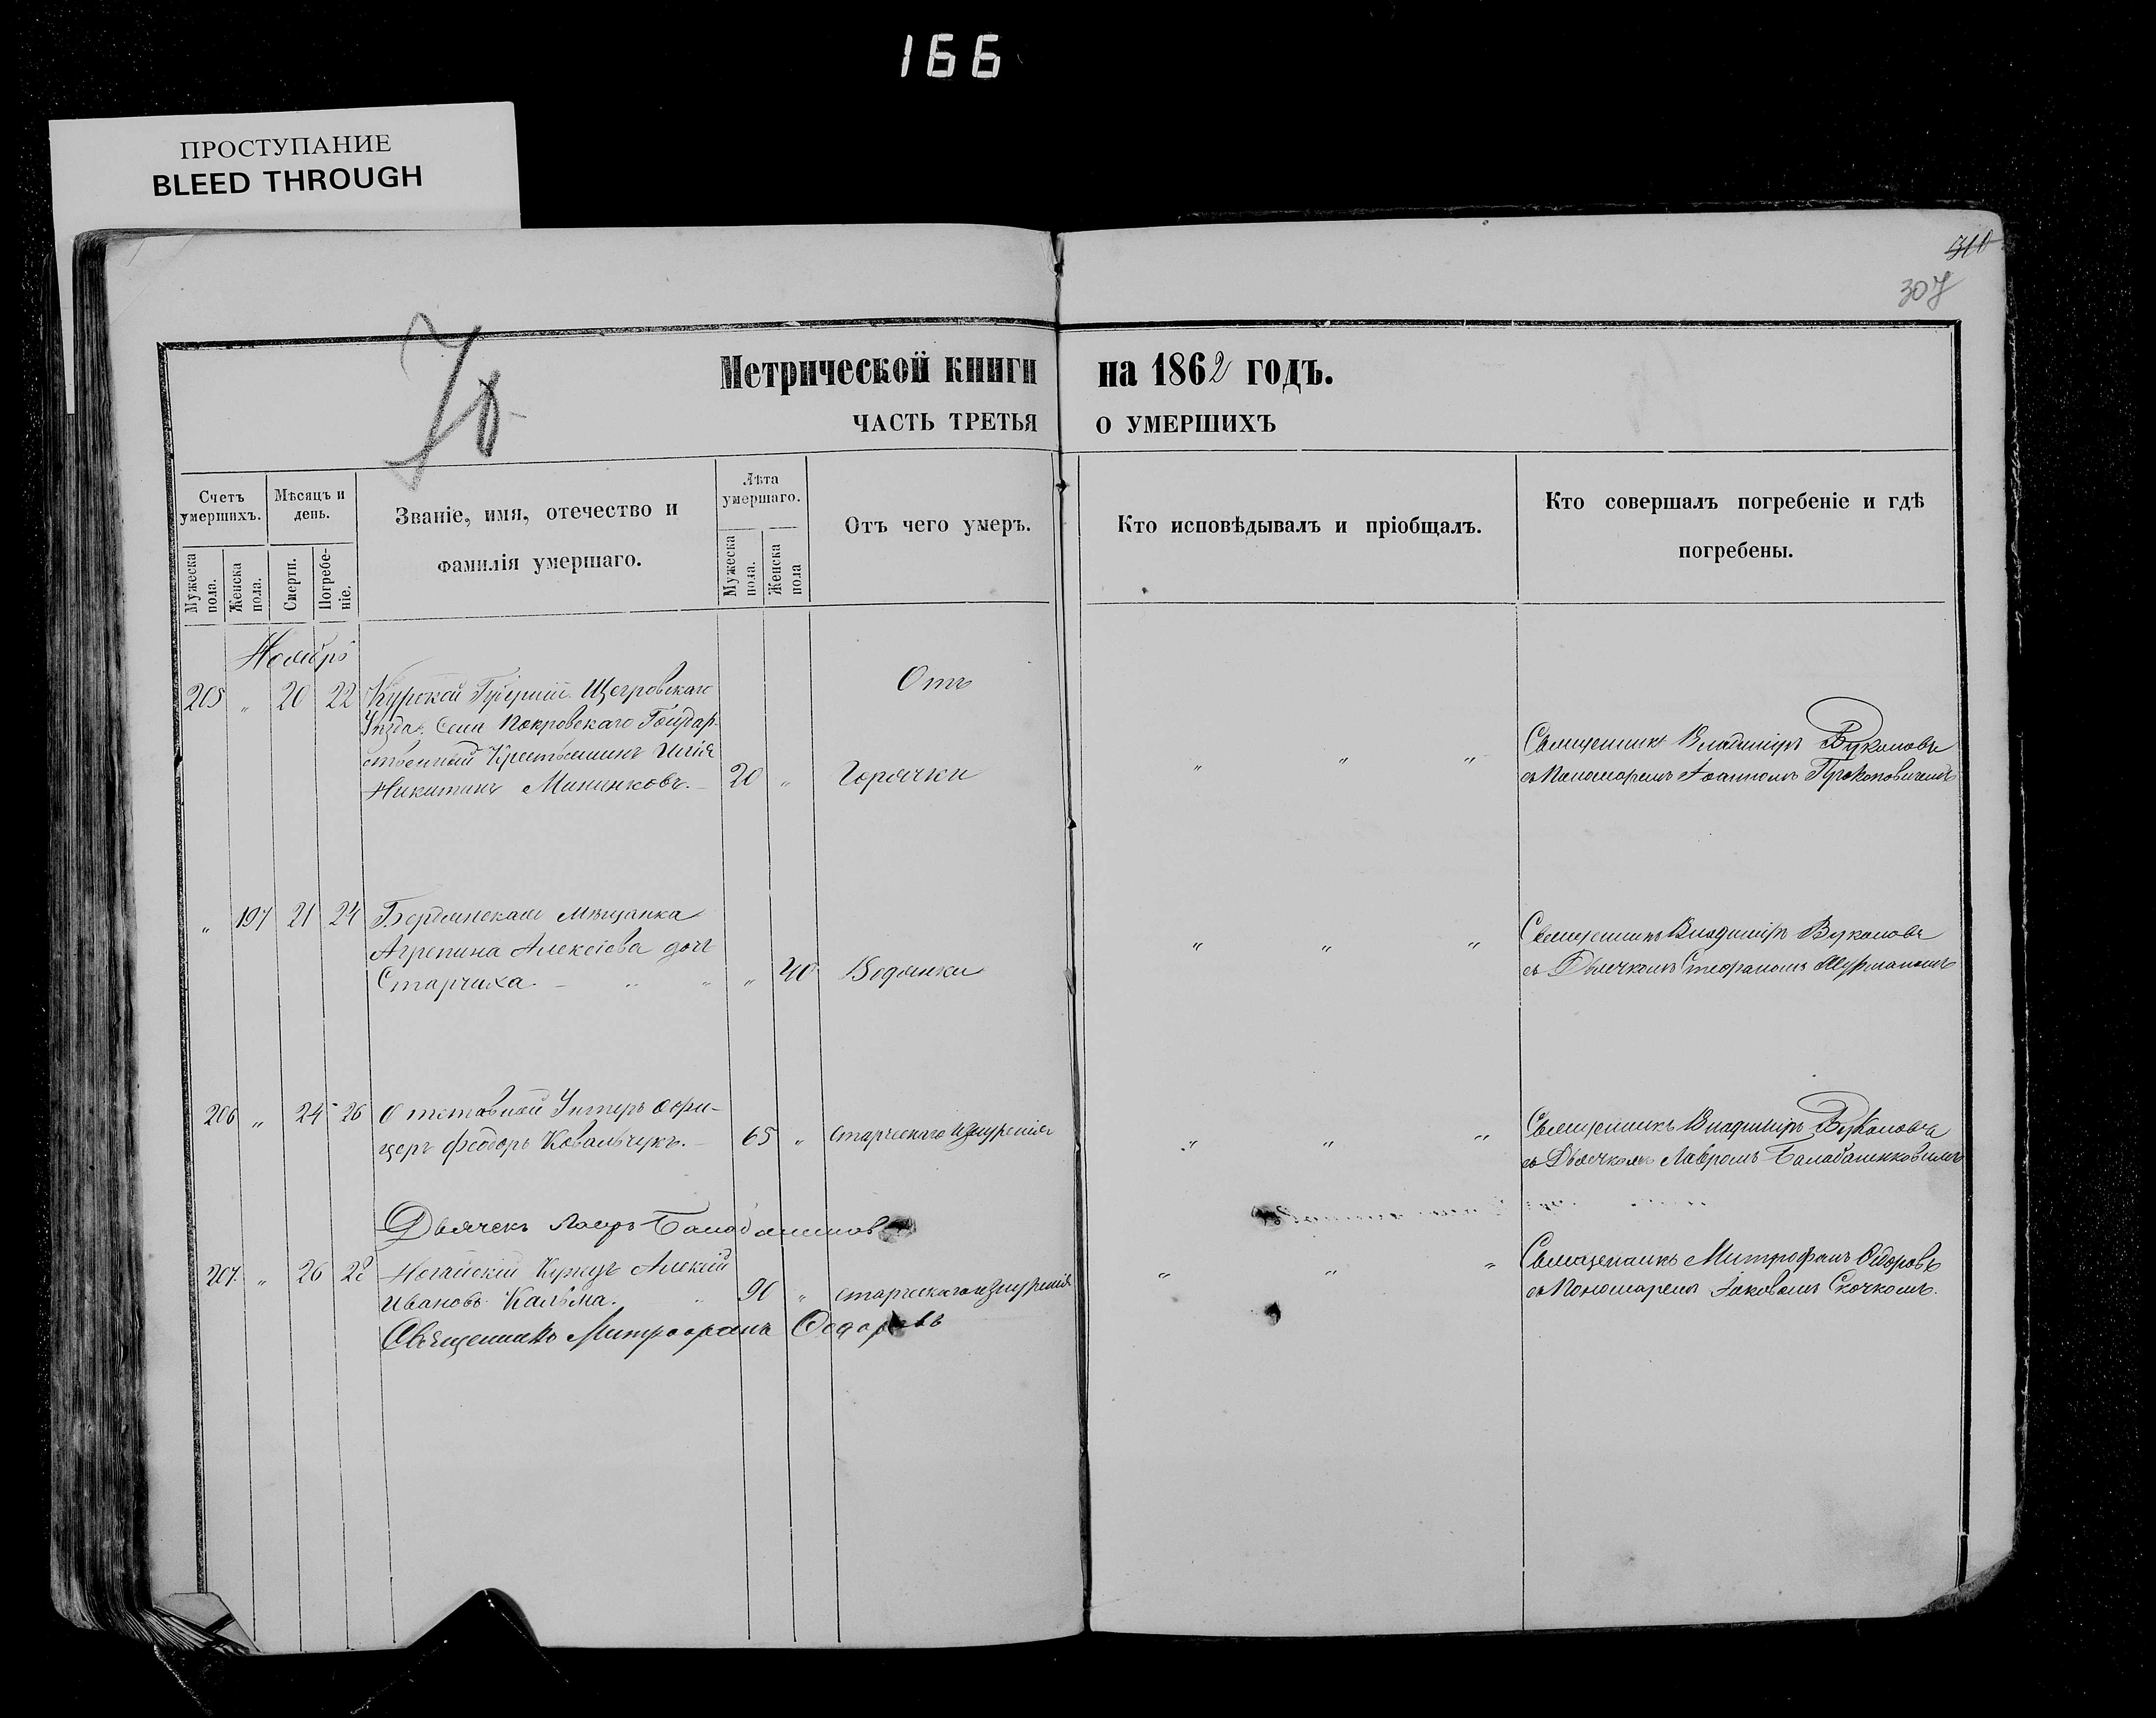 166
ПРОСТУПАНИЕ
BLEED THROUGH
310
307
Метрической книги на 1862 годъ.
ЧАСТЬ ТРЕТЬЯ О УМЕРШИХЪ
Счетъ умершихъ.
Мѣсяцъ и день.
Званіе, имя, отечество и фамилія умершаго.
Лѣта умершаго.
Отъ чего умеръ.
Кто исповѣдывалъ и пріобщалъ.
Кто совершалъ погребеніе и гдѣ погребены.
Мужеска пола.
Женска пола.
Смерти.
Погребеніе.
Мужеска пола.
Женска пола
Ноябрь
205 „ 20 22 Курской Губерніи Щегровскаго Отъ
Уѣзда, Села Покровскаго Государ-
ственный Крестьянинъ Илія Священникъ Владиміръ Вуколовъ
Никитинъ Мининковъ. 20 „ Горячки „ „ „ съ Пономаремъ Іоанномъ Прокоповичемъ
„ 197 21 24 Бердянская Мѣщанка Священникъ Владиміръ Вуколовъ
Агрепина Алексіева дочь „ „ „ съ Дьячкомъ Стефаномъ
Старчиха. „ „ „ 40 Водянки
206 „ 24 26 Отставной Унтеръ офи- Священникъ Владиміръ Вуколовъ
церъ Феодоръ Ковальчукъ. 65 „ старческаго изнуренія „ „ „ съ Дьячкомъ Лавромъ Балабаненковимъ
Дьячекъ Лавръ
207. „ 26 28 Ногайскій Купецъ Алексій Священникъ Митрофанъ Ѳедоровъ
Ивановъ Кальма. „ 90 „ старческаго изнуренія „ „ „ съ Пономаремъ Іаковомъ Скочкомъ.
Священникъ Митрофанъ Ѳедоровъ